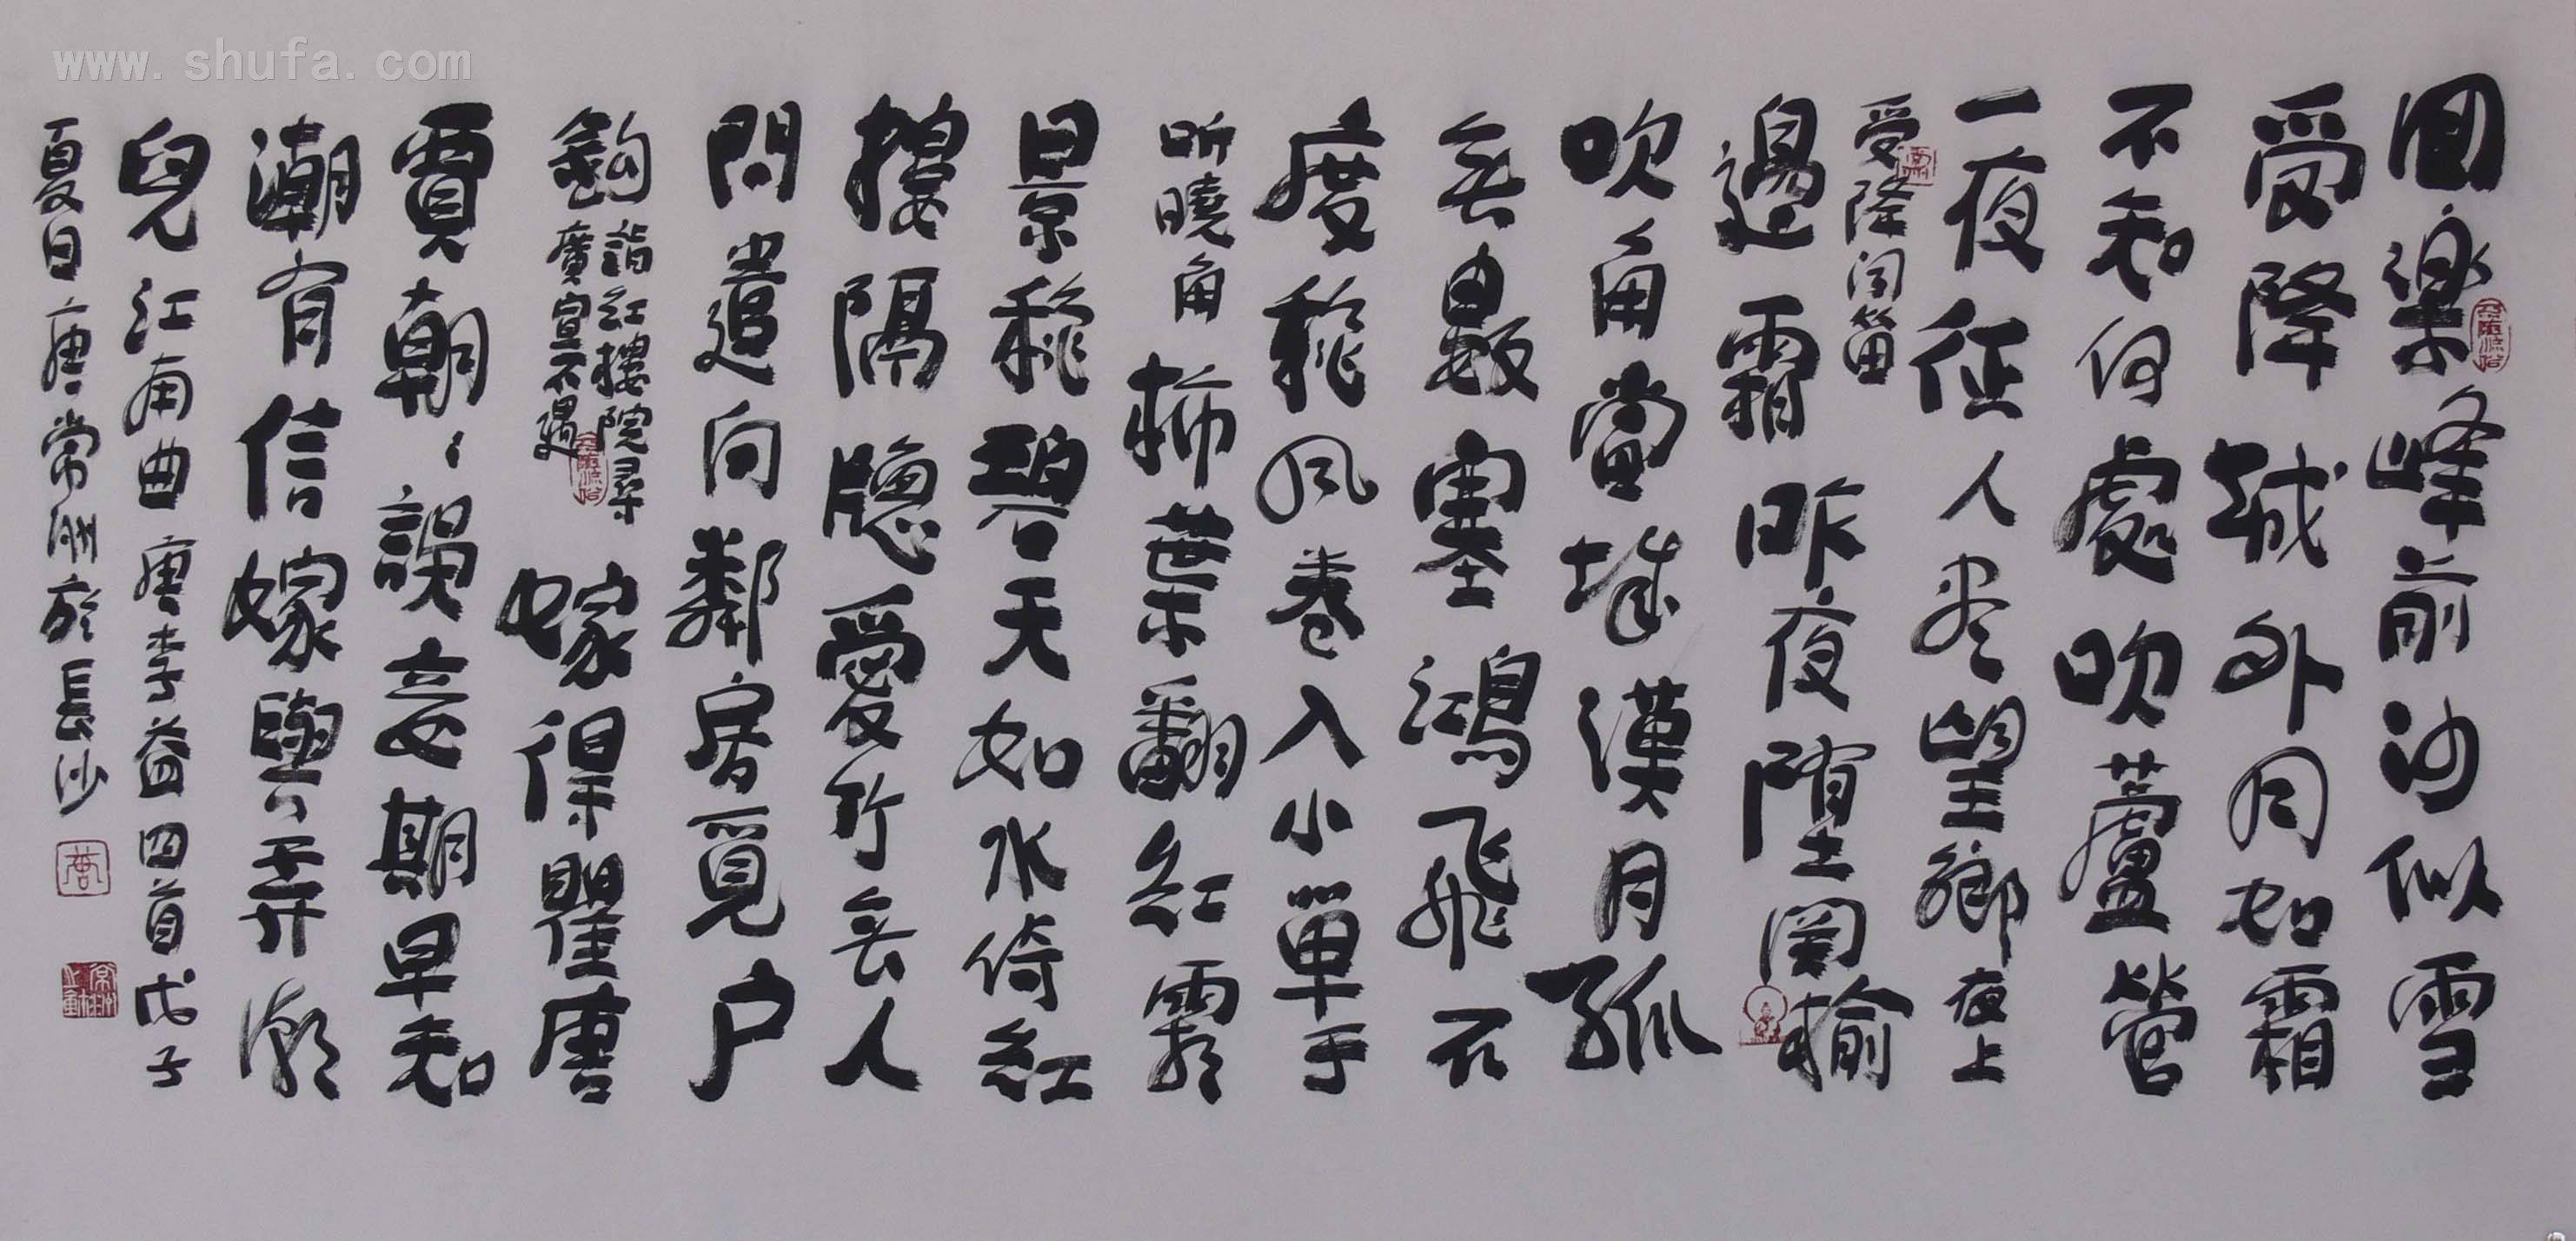 回樂峰前沙似雪
受降城外月如霜
不知何處吹蘆管
一夜征人尽望鄉 夜上
受降闻笛
邊霜昨夜墮関榆
吹角當城漢月孤
無數塞鴻飛不
度秋風卷入小單于
听曉角 柿葉翻紅霜
景秋碧天如水倚紅
樓隔牕愛竹無人
問遣向鄰房覓户
鉤 詣紅樓院尋
廣宣不遇 嫁得瞿唐
賈朝〻誤妾期早知
潮有信嫁與弄潮
兒 江南曲 唐李益四首 戊子
夏日 唐常州於長沙
www.shufa.com